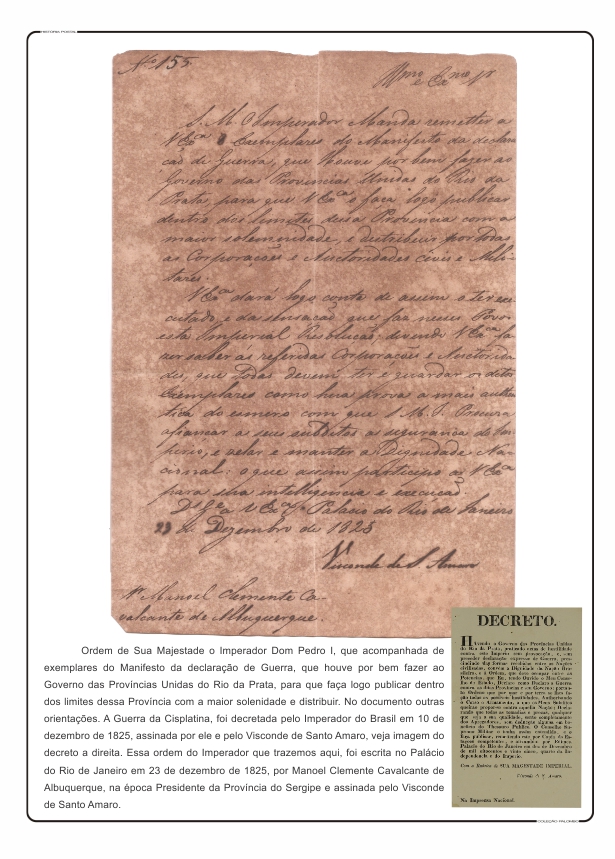 HISTÓRIA POSTAL
Nº 155.
Illmo e Exmo Sr
S. M. O Imperador Manda remetter a
V Exca 8 Exemplares do Manifesto da declara
ção de Guerra, que houve por bem fazer ao
Governo das Provincias Unidas do Rio da
Prata, para que V Exca o faça logo publicar
dentro dos limites dessa Provincia com a
maior solemnidade, e distribuir por todas
as Corporações e Auctoridades civis e Mili-
tares.
V Exca dará logo conta de assim o ter exe
cutado, e da sensação que faz nesse Povo
esta Imperial Resolução, devendo V Exca fa
zer saber as referidas Corporações e Auctorida
des, que todas devem ter e guardar os ditos
Exemplares como huma prova a mais authen
tica do esmero com que S. M. I. Procura
afiançar a seus subditos a segurança do Im
perio, e velar e manter a Dignidade Na-
cional: o que assim participo a V Exca
para sua intelligencia e execução.
Ds Ge a V Exca Palacio do Rio de Janeiro
23 de Dezembro de 1825
Visconde de S. Amaro
Sr Manoel Clemente Ca-
valcante de Albuquerque.
Ordem de Sua Majestade o Imperador Dom Pedro I, que acompanhada de
exemplares do Manifesto da declaração de Guerra, que houve por bem fazer ao
Governo das Províncias Unidas do Rio da Prata, para que faça logo publicar dentro
dos limites dessa Província com a maior solenidade e distribuir. No documento outras
orientações. A Guerra da Cisplatina, foi decretada pelo Imperador do Brasil em 10 de
dezembro de 1825, assinada por ele e pelo Visconde de Santo Amaro, veja imagem do
decreto a direita. Essa ordem do Imperador que trazemos aqui, foi escrita no Palácio
do Rio de Janeiro em 23 de dezembro de 1825, por Manoel Clemente Cavalcante de
Albuquerque, na época Presidente da Província do Sergipe e assinada pelo Visconde
de Santo Amaro.
DECRETO.
Havendo o Governo das Provincias Unidas
do Rio da Prata, praticado actos de hostilidade
Com a Rubrica de SUA MAGESTADE IMPERIAL.
Visconde de S. Amaro.
Na Imprensa Nacional.
COLEÇÃO PALOMBO